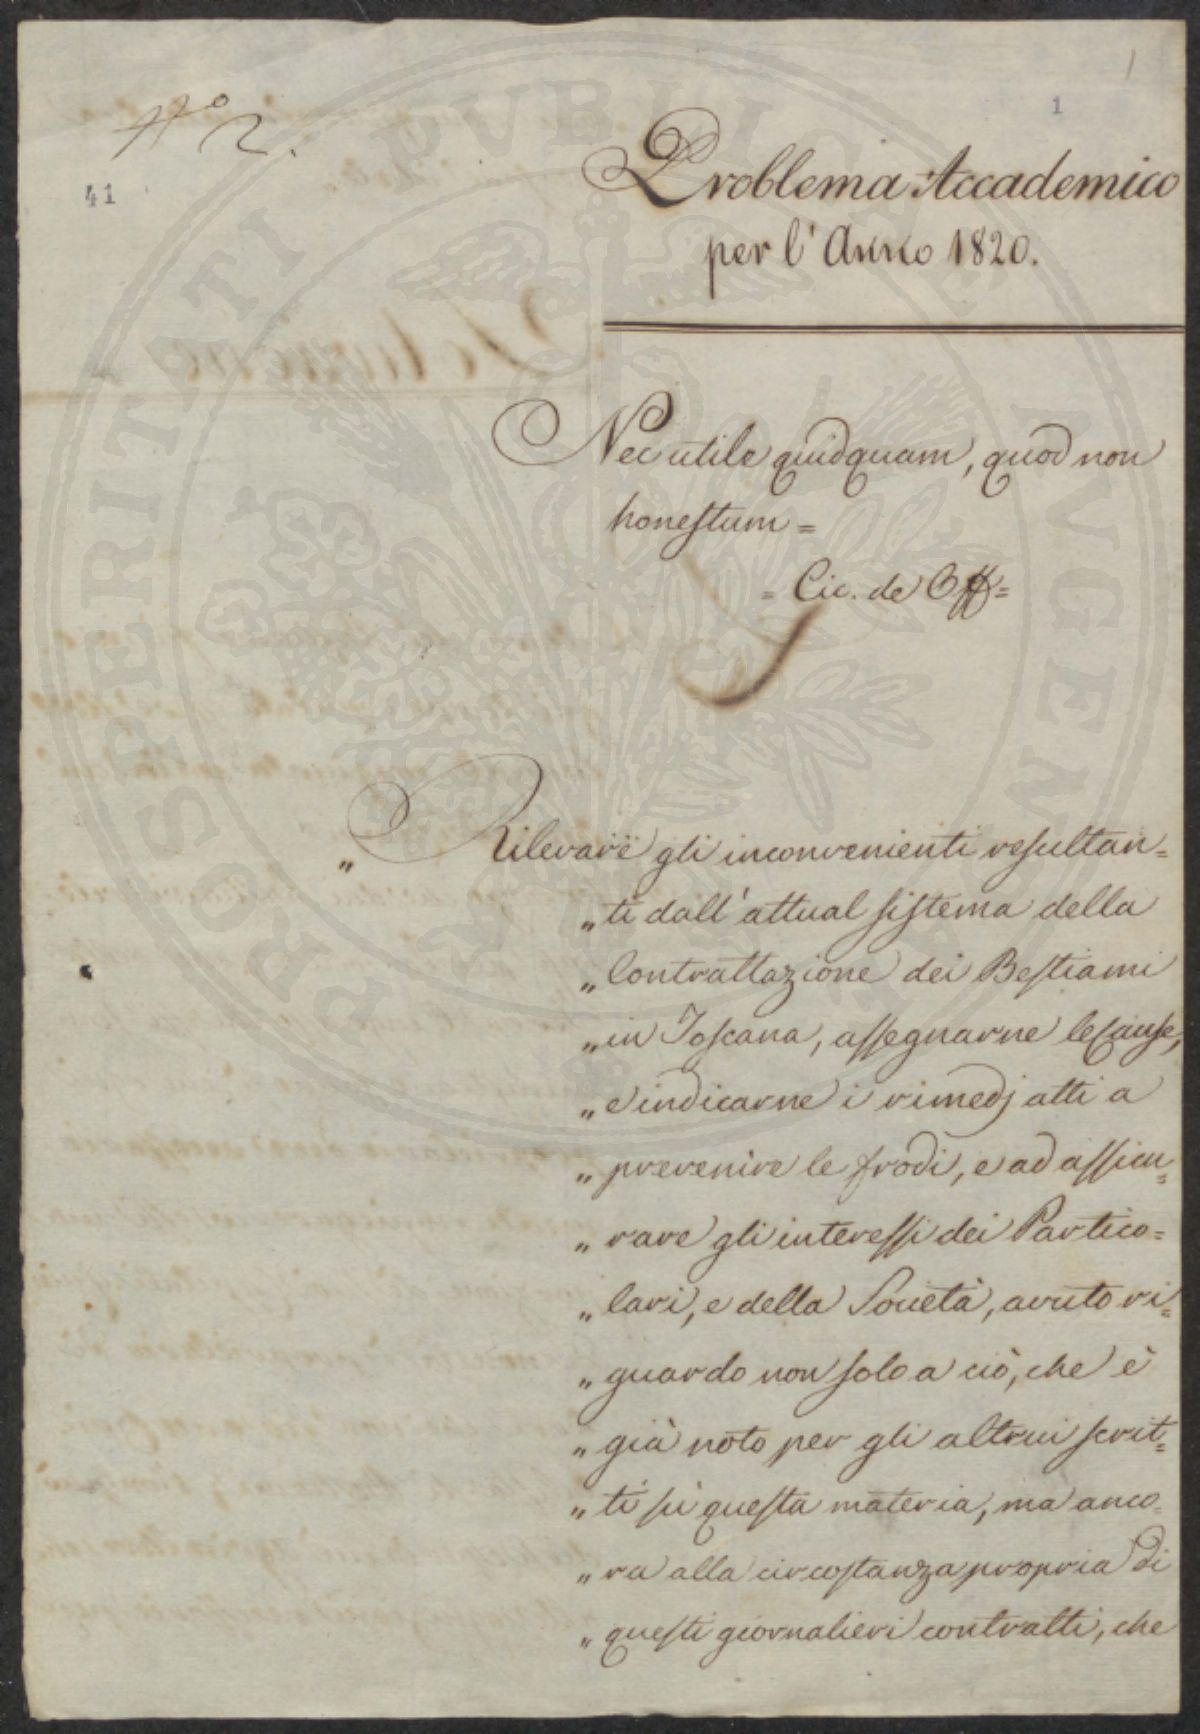 1
1
N.º 2.
41
Problema Accademico
per l'Anno 1820.
Nec utile quidquam, quod non
honestum =
= Cic. de Off =
„ Rilevare gli inconvenienti resultan=
„ ti dall'attual sistema della
„ Contrattazione dei Bestiami
„ in Toscana, assegnarne le Cause,
„ e indicarne i rimedj atti a
„ prevenire le frodi, e ad assicu=
„ rare gli interessi dei Partico=
„ lari, e della Società, avuto ri=
„ guardo non solo a ciò, che è
„ già noto per gli altrui scrit=
„ ti su questa materia, ma anco=
„ ra alla circostanza propria di
„ questi giornalieri contratti, che
PROSPERITATI PVBLICAE AVGENDAE